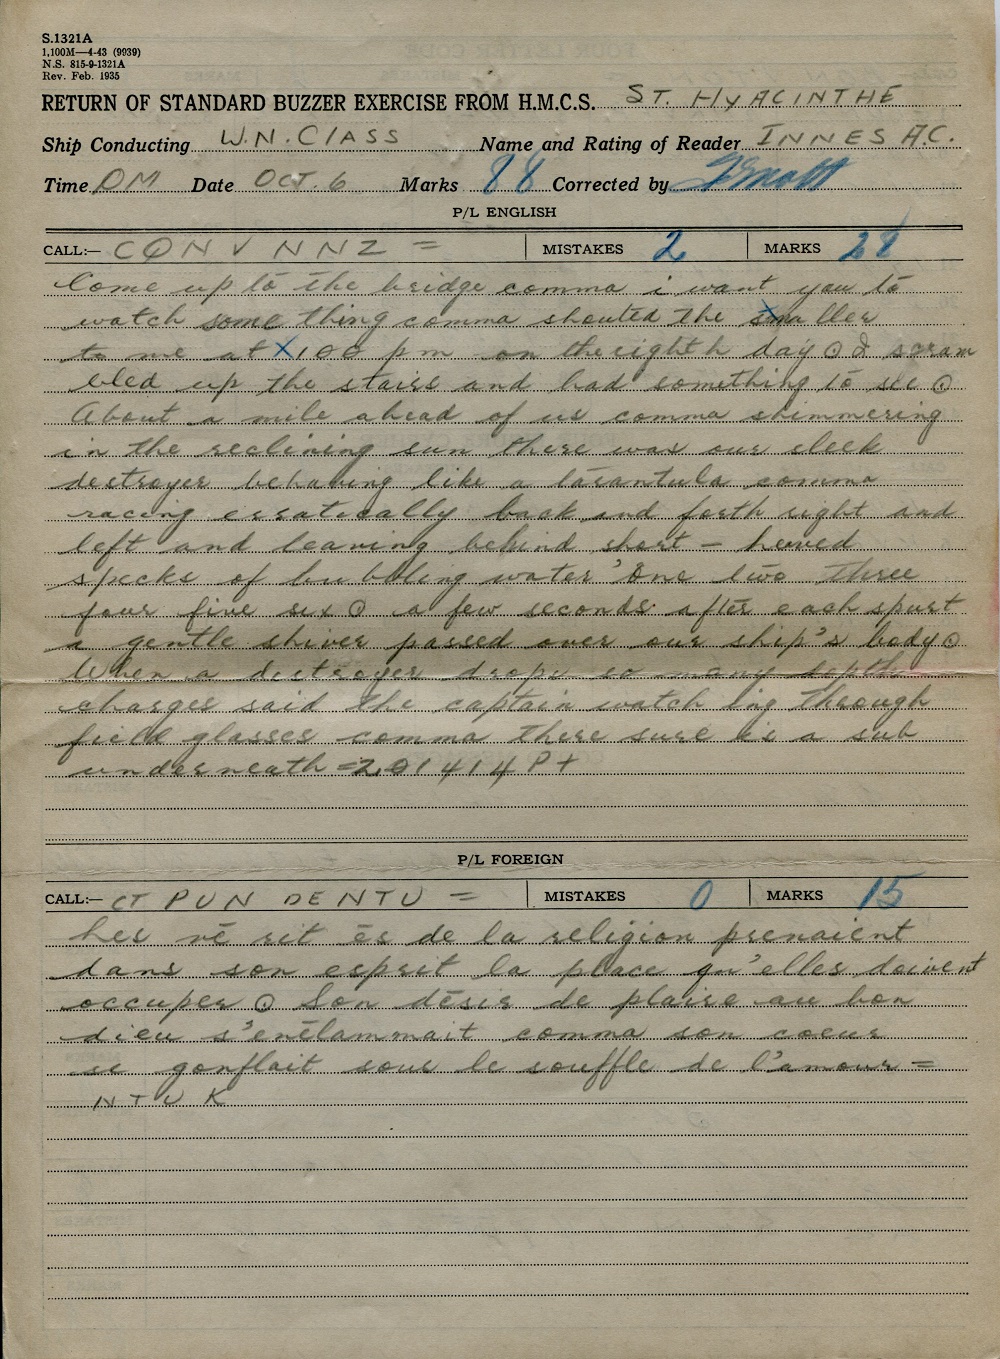 S.1321A
1,100M—4-43 (9939)
N.S. 815-9-1321A
Rev. Feb. 1935
RETURN OF STANDARD BUZZER EXERCISE FROM H.M.C.S. ST. HYACINTHE
Ship Conducting W.N. Class Name and Rating of Reader INNES A.C.
Time PM Date OCT. 6 Marks 88 Corrected by
P/L ENGLISH
CALL:— CQN V NNZ = MISTAKES 2 MARKS 28
Come up to the bridge comma i want you to
watch some thing comma shouted the smaller
to me at X100 pm on the eighth day ⊙ I scram
bled up the stairs and had something to see ⊙
About a mile ahead of us comma shimmering
in the reclining sun there was our sleek
destroyer behaving like a tarantula comma
racing erratically back and forth right and
left and leaving behind short – hewed
specks of bubbling water One two three
four five six ⊙ a few seconds after each spurt
a gentle shiver passed over our ship's body ⊙
When a destroyer drops so many depth
charges said the captain watch ing through
field glasses comma there sure is a sub
underneath = 201414P+
P/L FOREIGN
CALL:— CT PUN DE NTU = MISTAKES 0 MARKS 15
Les vé rit és de la religion prenaient
dans son esprit la place qu'elles doivent
occuper ⊙ Son désir de plaire au bon
dieu s'enélammait comma son coeur
se gonflait sous le souffle de l'amour =
NTU K